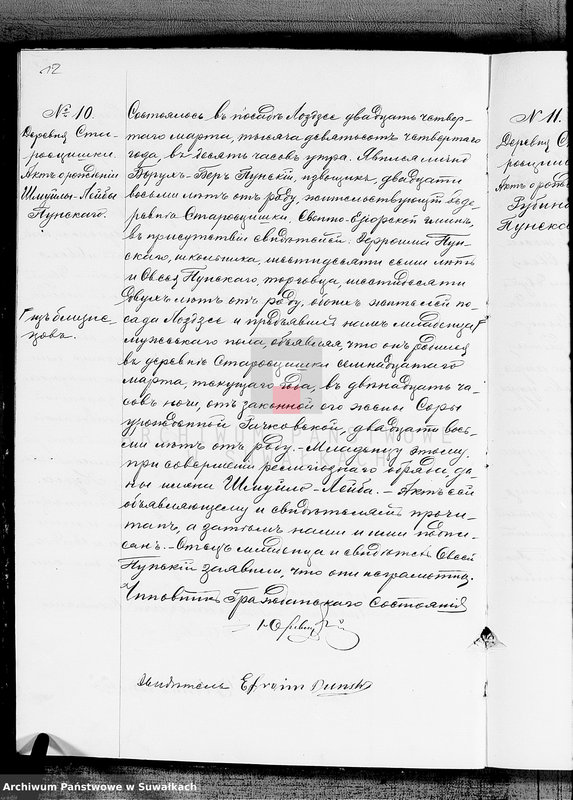 12
№ 10.
Деревня Ста-
росцишки.
Актъ о рожденіи
Шмуйлы-Лейбы
Пунскаго.
Состоялось въ посадѣ Лоздзее двадцать четвер-
таго марта, тысяча девятьсотъ четвертаго
года, въ десять часовъ утра. Явился лично
Беръ Пунскій, извощикъ, двадцати
восьми лѣтъ отъ роду, жительствующій въ де-
ревнѣ Старосцишки, Свенто-Езіорской гмины,
въ присутствіи свидѣтелей: Эфроима Пун-
скаго, школьника, шестидесяти семи лѣтъ
и Овсея Пунскаго, торговца, шестидесяти
двухъ лѣтъ отъ роду, обоихъ жителей по-
сада Лоздзее и предъявилъ намъ младенца
мужескаго пола, объявляя, что онъ родился
въ деревнѣ Старосцишки семнадцатаго
марта, текущаго года, въ двѣнадцать ча-
совъ ночи, отъ законной его жены Соры
урожденной двадцати вось-
ми лѣтъ отъ роду. - Младенцу этому,
при совершеніи религіознаго обряда, да-
ны имена Шмуйло-Лейба. - Актъ сей
объявляющему и свидѣтелямъ прочи-
танъ, а затѣмъ нами и ими подпи-
санъ. - Отецъ младенца и свидѣтель Овсей
Пунскій заявили, что они неграмотны.
Чиновникъ Гражданскаго Состоянія
Свидѣтель Efroim Punski
изъ близне-
цовъ.
№ 11.
Деревня С
Актъ о рожд
Рубина
Пунска
ARCHIWUM PAŃSTWOWE
W SUWAŁKACH
Archiwum Państwowe w Suwałkach